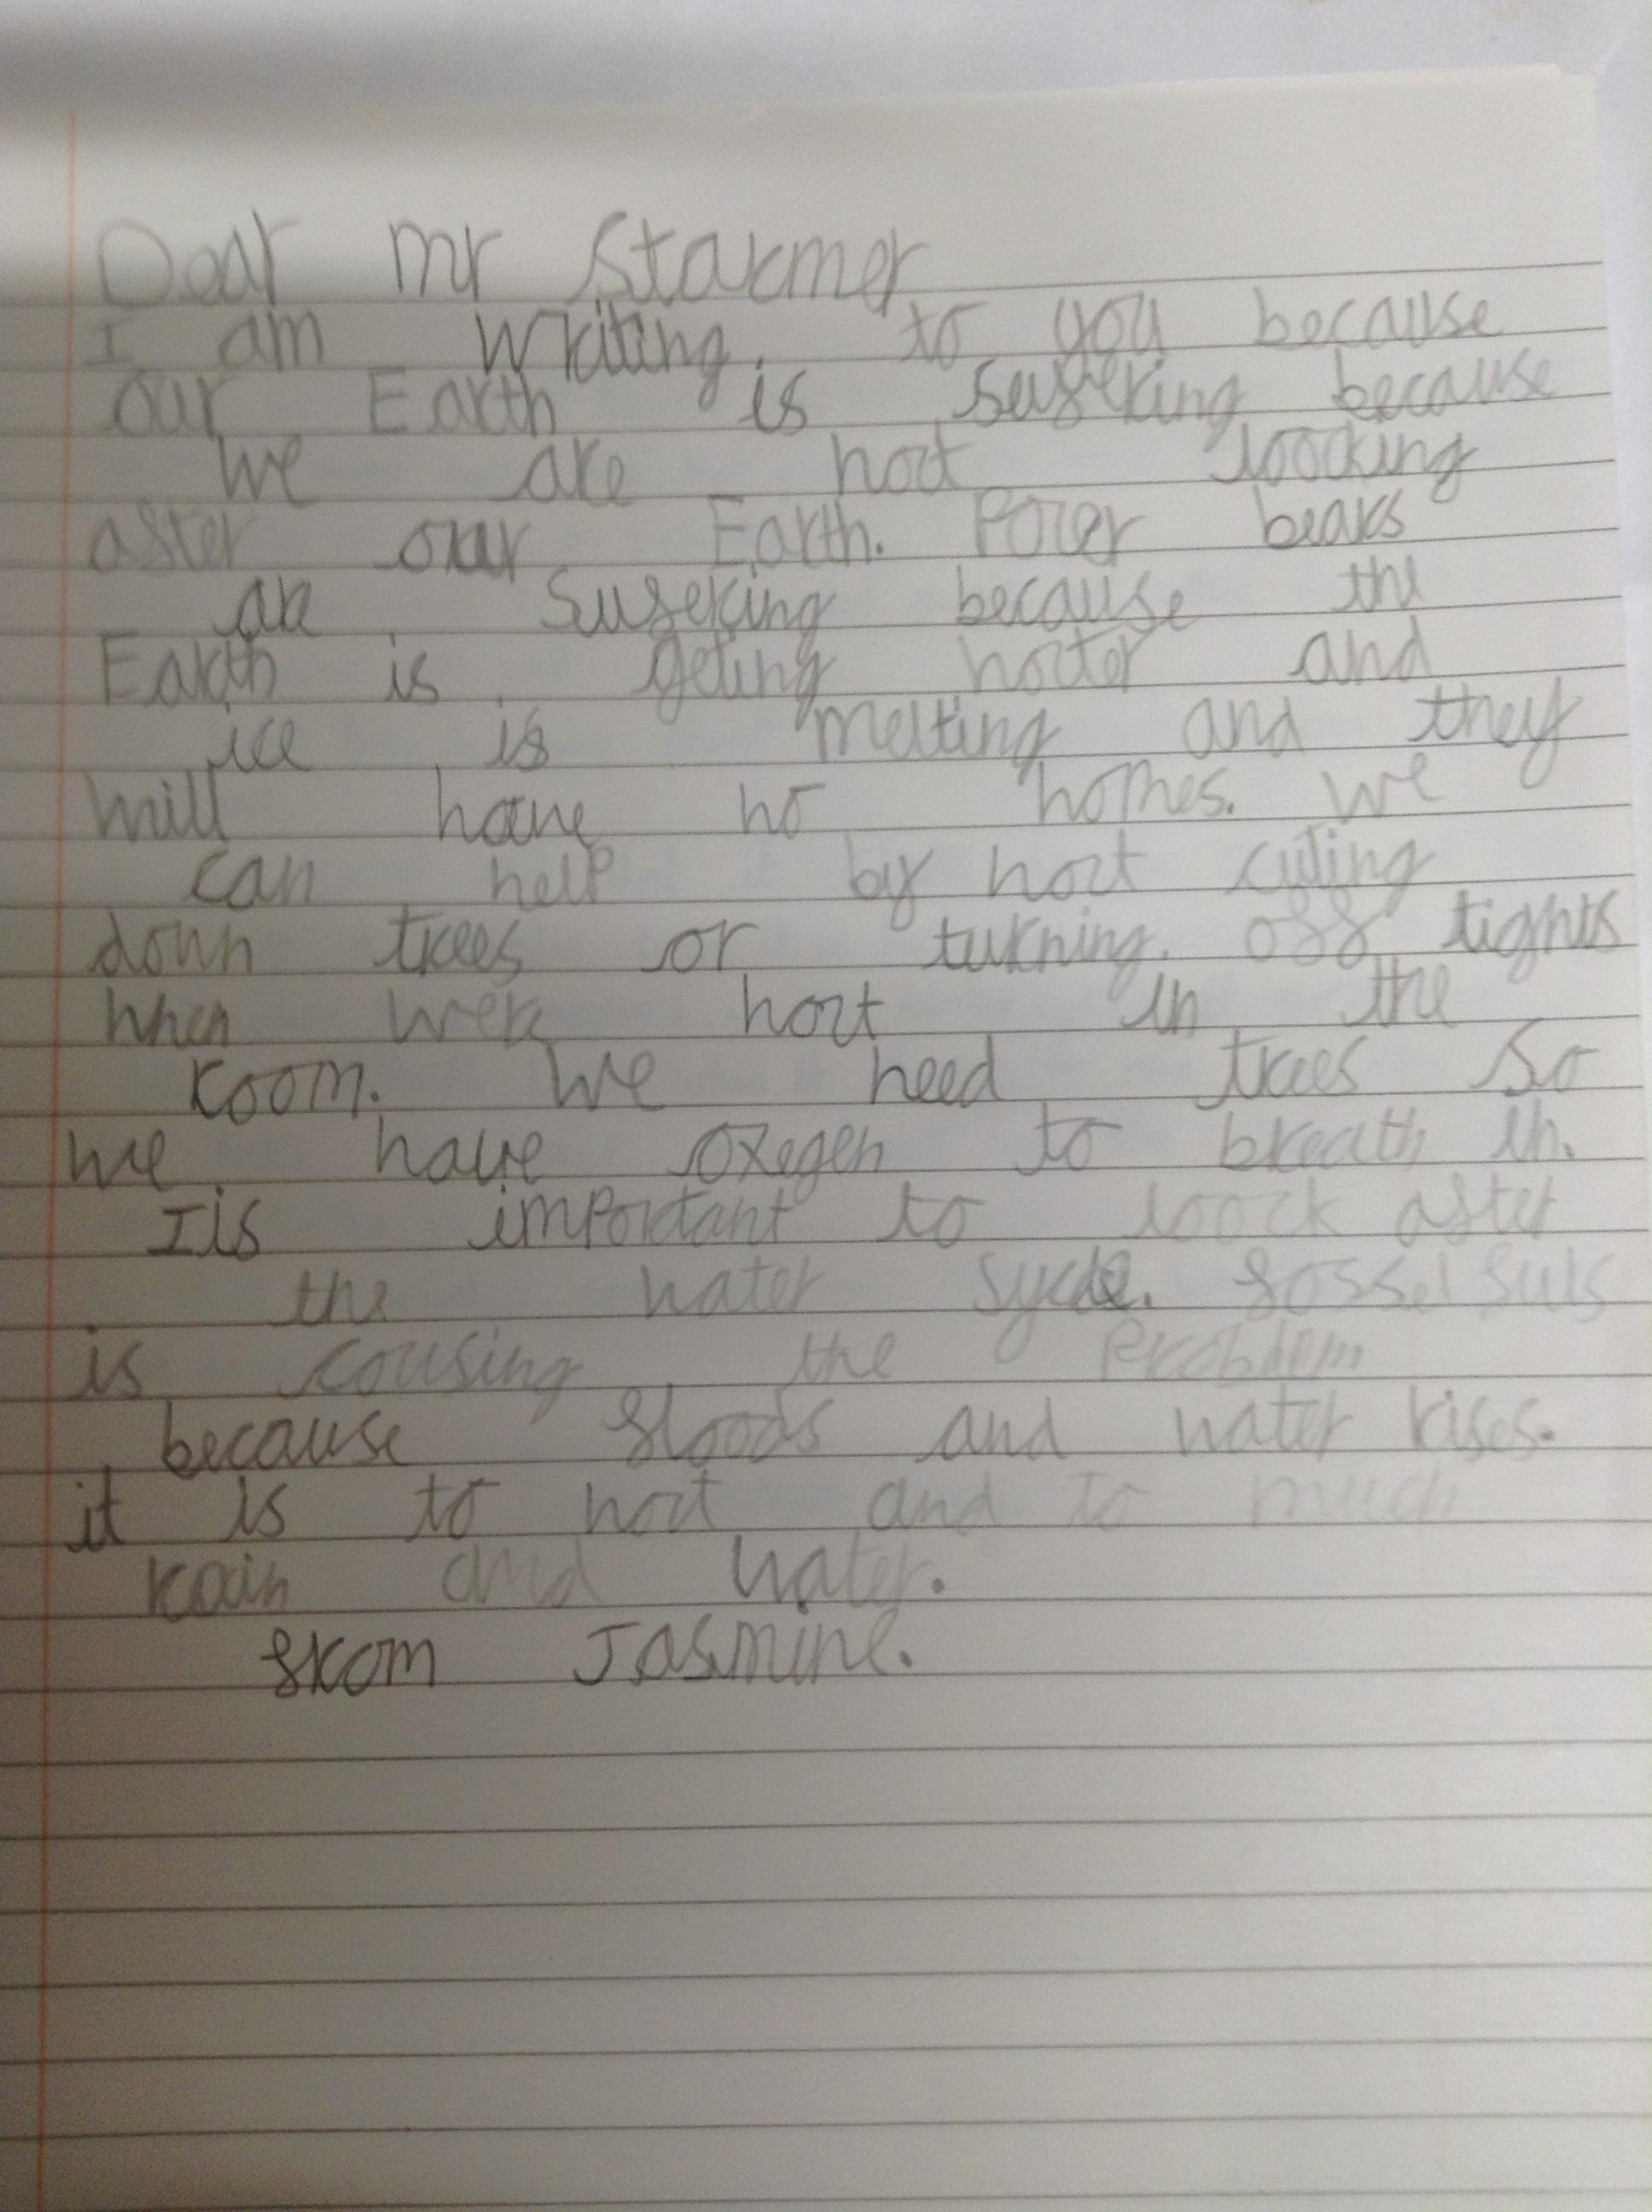 Dear Mr Starmer
I am writing. to you because
our Earth is sufering because
we are not loocking
after our Earth. Poler bears
are sufering because the
Earth is geting hotter and
ice is melting and they
will have no homes. we
can help by not cuting
down trees or turning. off lights
when were not in the
room. We need trees so
we have oxegen to breath in.
Iis important to loock after
the water sycle. fossel fuls
is cousing the problem
because floods and water rises.
it is to hot and to much
rain and water.
from Jasmine.